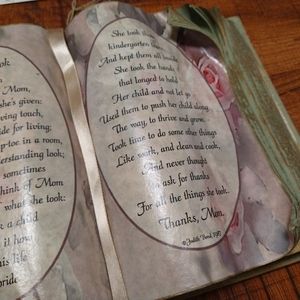 ok
Mom,
she's given:
ving touch,
de for living;
p-toe in a room,
erstanding look;
sometimes
hink of Mom
what she took:
a child
how
his life
bride
She took the
kindergarten
And kept them all
She took the hands
that longed to hold
Her child and not let go
Used them to push her child along
The way, to thrive and grow.
Took time to do some other things
Like work, and clean and cook,
And never thought
to ask for thanks
For all the things she took.
Thanks, Mom.